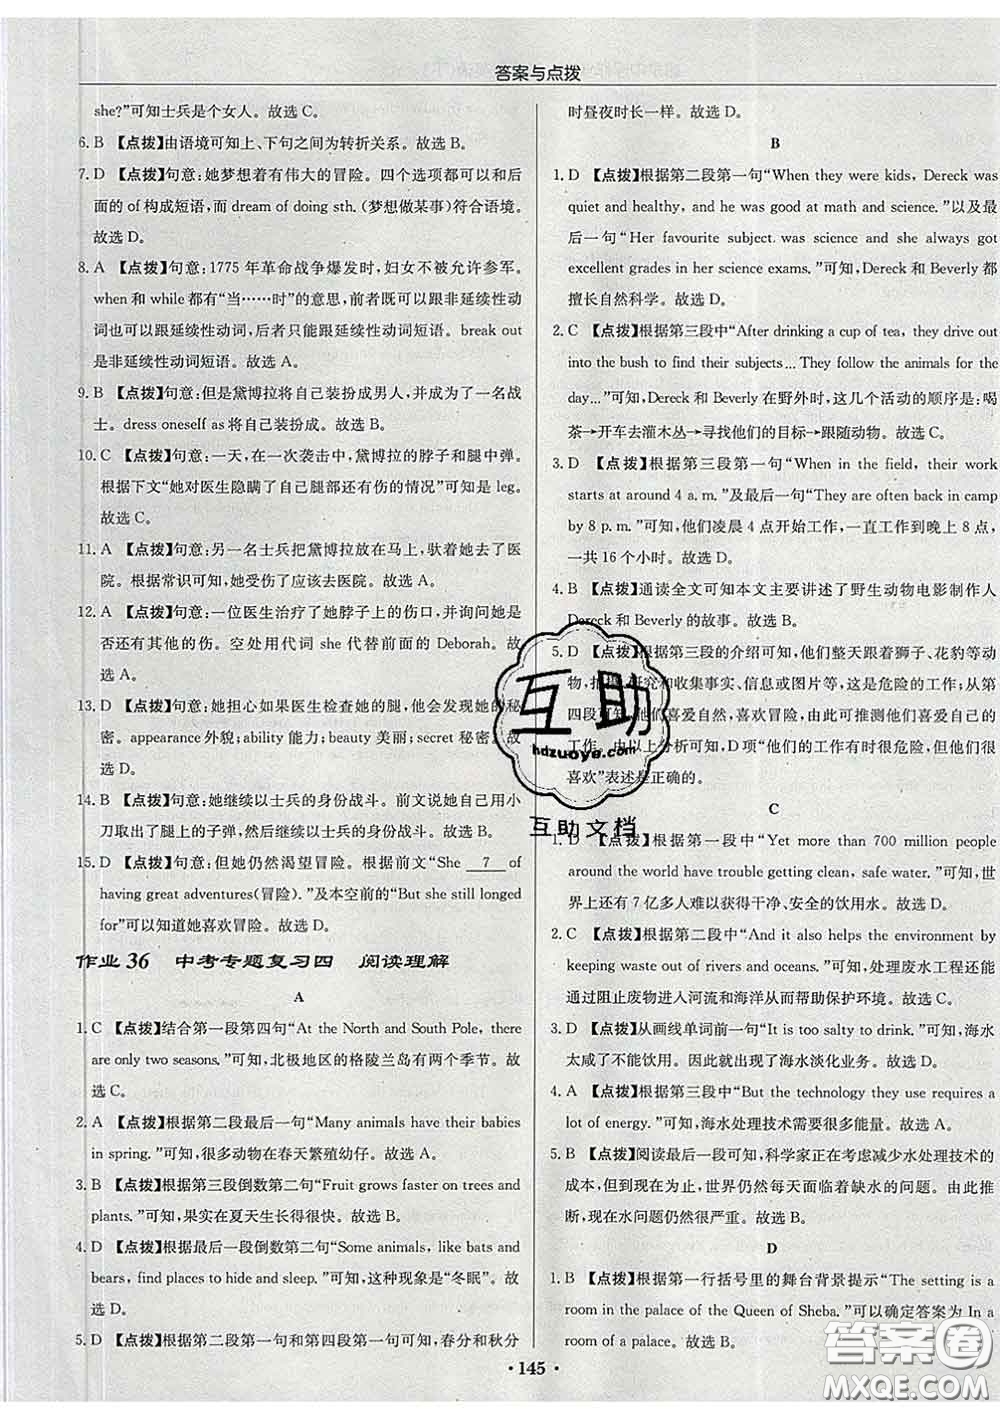 答案与点拨
she?”可知士兵是个女人。故选 C。
6. B 【点拨】由语境可知上、下句之间为转折关系。故选 B。
7. D 【点拨】句意:她梦想着有伟大的冒险。四个选项都可以和后
面的 of 构成短语,而 dream of doing sth. (梦想做某事)符合语境。
故选 D。
8. A 【点拨】句意:1775 年革命战争爆发时,妇女不被允许参军。
when 和 while 都有“当……时”的意思,前者既可以跟非延续性动
词也可以跟延续性动词,后者只能跟延续性动词短语。break out
是非延续性动词短语。故选 A。
9. B 【点拨】句意:但是黛博拉将自己装扮成男人,并成了一名战
士。dress oneself as 将自己装扮成。故选 B。
10. C 【点拨】句意:一天,在一次袭击中,黛博拉的脖子和腿中弹。
根据下文“她对医生隐瞒了自己腿部还有伤的情况”可知是 leg。
故选 C。
11. A 【点拨】句意:另一名士兵把黛博拉放在马上,驮着她去了医
院。根据常识可知,她受伤了应该去医院。故选 A。
12. A 【点拨】句意:一位医生治疗了她脖子上的伤口,并询问她是
否还有其他的伤。空处用代词 she 代替前面的 Deborah。故
选 A。
13. D 【点拨】句意:她担心如果医生检查她的腿,他会发现她的秘
密。appearance 外貌;ability 能力;beauty 美丽;secret 秘密。故
选 D。
14. B 【点拨】句意:她继续以士兵的身份战斗。前文提到她用小
刀取出了腿上的子弹,然后继续以士兵的身份战斗。故选 B。
15. D 【点拨】句意:但她仍然渴望冒险。根据前文“She 7 of
having great adventures(冒险). ”及本空前的“But she still longed
for”可以知道她喜欢冒险。故选 D。
作业 36 中考专题复习四 阅读理解
A
1. C 【点拨】结合第一段第四句“At the North and South Pole, there
are only two seasons. ”可知,北极地区的格陵兰岛有两个季节。故
选 C。
2. A 【点拨】根据第二段最后一句“Many animals have their babies
in spring. ”可知,很多动物在春天繁殖幼仔。故选 A。
3. B 【点拨】根据第三段倒数第二句“Fruit grows faster on trees and
plants. ”可知,果实在夏天生长得很快。故选 B。
4. D 【点拨】根据最后一段倒数第二句“Some animals, like bats and
bears, find places to hide and sleep. ”可知,这种现象是“冬眠”。故
选 D。
5. D 【点拨】根据第二段第一句和第四段第一句可知,春分和秋分
时昼夜时长一样。故选 D。
B
1. D 【点拨】根据第二段第一句“When they were kids, Dereck was
quiet and healthy, and he was good at math and science. ”以及最
后一句“Her favourite subject was science and she always got
excellent grades in her science exams. ”可知,Dereck 和 Beverly 都
擅长自然科学。故选 D。
2. C 【点拨】根据第三段中“After drinking a cup of tea, they drive out
into the bush to find their subjects... They follow the animals for the
day...”可知,Dereck 和 Beverly 在野外时,这几个活动的顺序是:喝
茶→开车去灌木丛→寻找他们的目标→跟随动物。故选 C。
3. D 【点拨】根据第三段第一句“When in the field, their work
starts at around 4 a. m. ”及最后一句“They are often back in camp
by 8 p. m. ”可知,他们凌晨 4 点开始工作,一直工作到晚上 8 点,
一共 16 个小时。故选 D。
4. B 【点拨】通读全文可知本文主要讲述了野生动物电影制作人
Dereck 和 Beverly 的故事。故选 B。
5. D 【点拨】根据第三段的介绍可知,他们整天跟着狮子、花豹等动
物,拍摄、研究和收集事实、信息或图片等,这是危险的工作;从第
四段可知,他们喜爱自然,喜欢冒险,由此可推测他们喜爱自己的
工作。由以上分析可知,D 项“他们的工作有时很危险,但他们很
喜欢”表述是正确的。
C
1. D 【点拨】根据第一段中“Yet more than 700 million people
around the world have trouble getting clean, safe water. ”可知,世
界上还有 7 亿多人难以获得干净、安全的饮用水。故选 D。
2. C 【点拨】根据第二段中“And it also helps the environment by
keeping waste out of rivers and oceans. ”可知,废水处理工程还能
通过阻止废物进入河流和海洋从而帮助保护环境。故选 C。
3. D 【点拨】从画线单词前一句“It is too salty to drink. ”可知,海水
太咸了不能饮用。因此就出现了海水淡化业务。故选 D。
4. A 【点拨】根据第三段中“But the technology they use requires a
lot of energy. ”可知,海水处理技术需要很多能量。故选 A。
5. B 【点拨】阅读最后一段可知,科学家正在考虑减少水处理技术的
成本,但到目前为止,世界仍然每天面临着缺水的问题。由此推
断,现在水问题仍然很严重。故选 B。
D
1. B 【点拨】根据第一行括号里的舞台背景提示“The setting is a
room in the palace of the Queen of Sheba. ”可以确定答案为 In a
room of a palace. 故选 B。
• 145 •
互助
hdzuoye.com
互助文档
答案圈
MXQE.COM